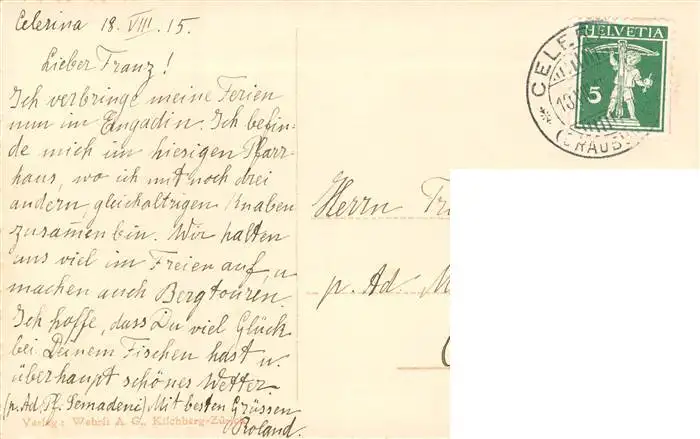 Celerina 18. VIII. 15.
Lieber Franz!
Ich verbringe meine Ferien
nun im Engadin. Ich befin-
de mich im hiesigen Pfarr-
haus, wo ich mit noch drei
andern, gleichaltrigen Knaben
zusammen bin. Wir halten
uns viel im Freien auf, u.
machen auch Bergtouren.
Ich hoffe, dass Du viel Glück
bei Deinem Fischen hast u.
überhaupt schönes Wetter.
(p. Ad. Pf. Semadeni) Mit besten Grüssen
Roland.
Verlag: Wehrli A. G., Kilchberg-Zürich
HELVETIA
5
CELE
(GRAUB
Herrn Fr
p. Ad. M